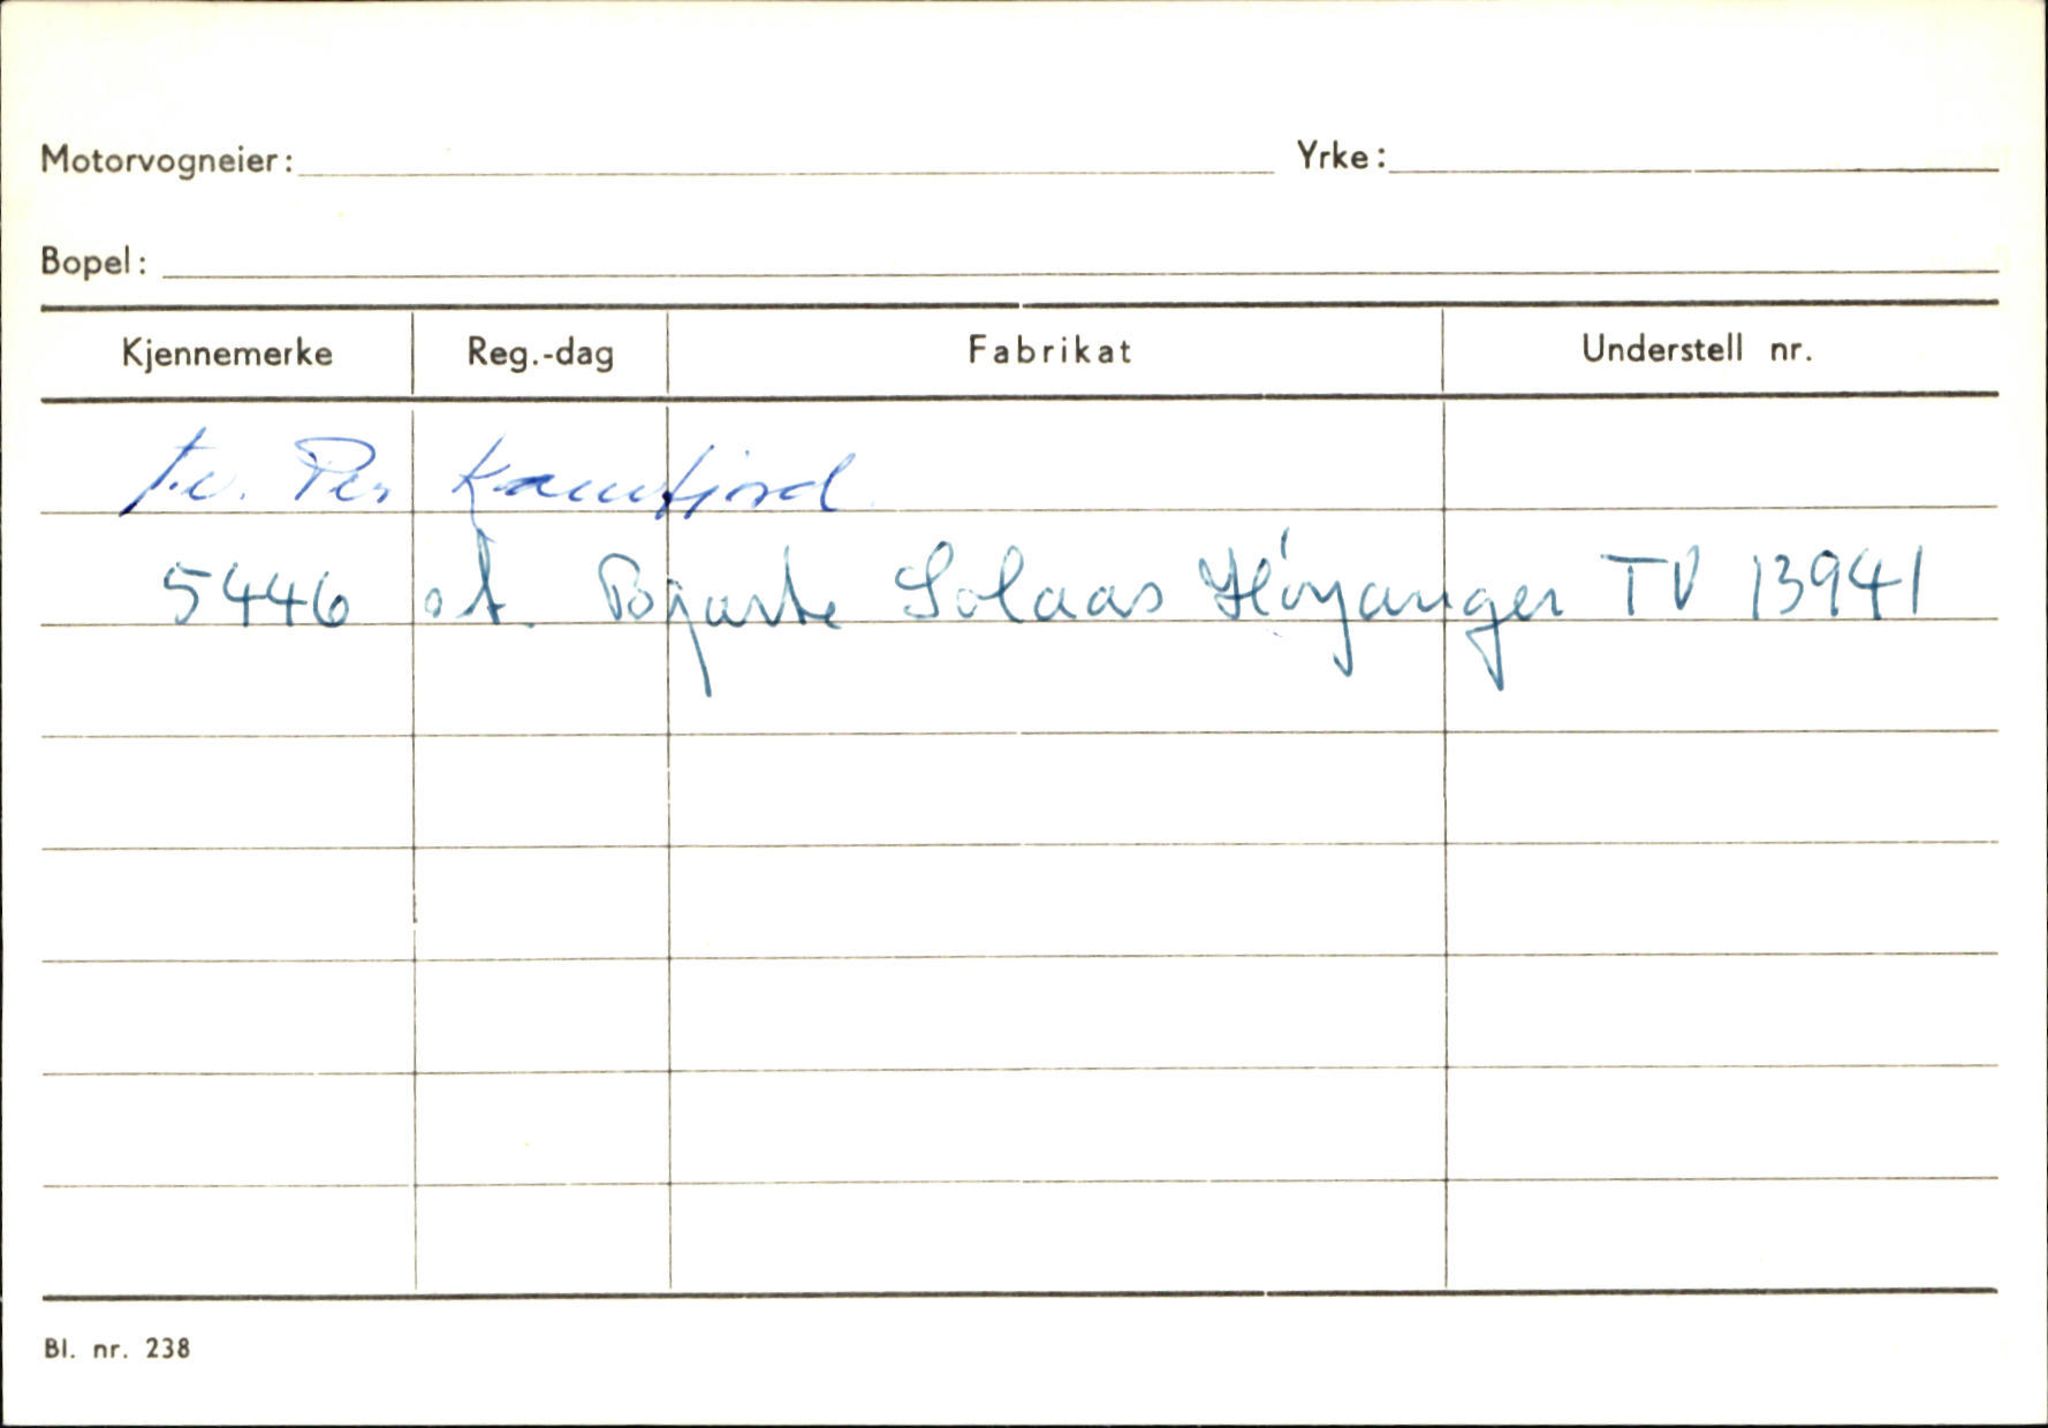 Motorvogneier: Yrke:
Bopel:
Kjennemerke Reg.-dag Fabrikat Understell nr.
Per
5446 Bjarte Solaas Høyanger TV 13941
Bl. nr. 238